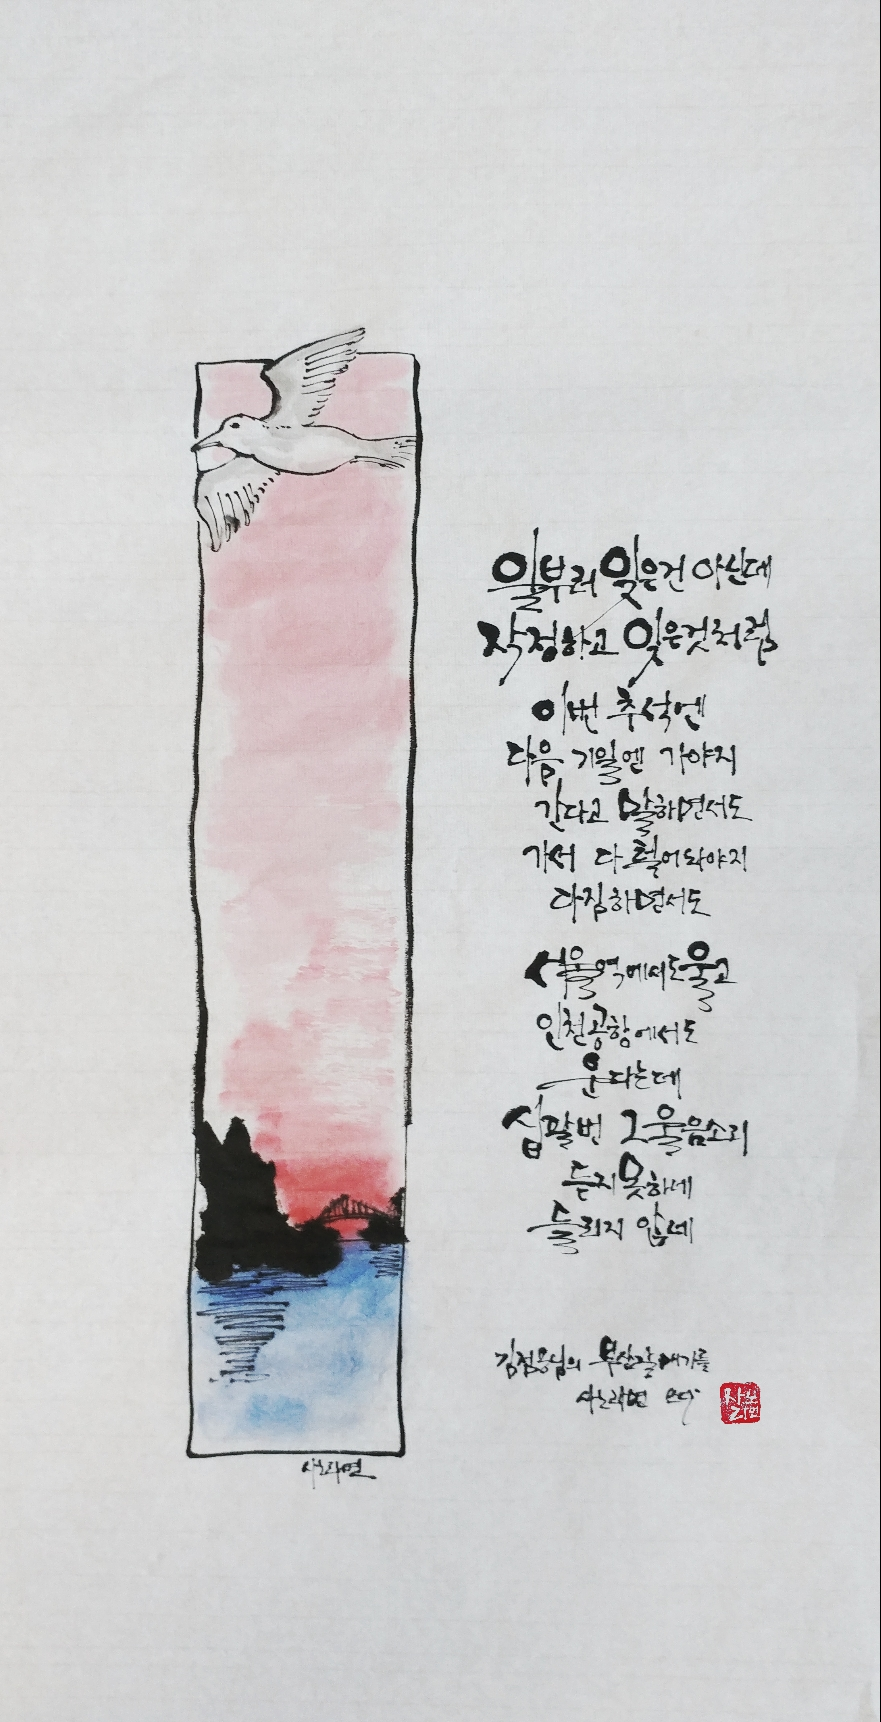 일부러 잊은건 아닌데
작정하고 잊은것처럼
이번 추석엔
다음 기일엔 가야지
간다고 말하면서도
가서 다 털어놔야지
다짐하면서도
서울역에서도 울고
인천공항에서도
운다는데
십팔번 그 울음소리
듣지 못하네
들리지 않네
김점용님의 부산갈매기를
사노라면
사노라면